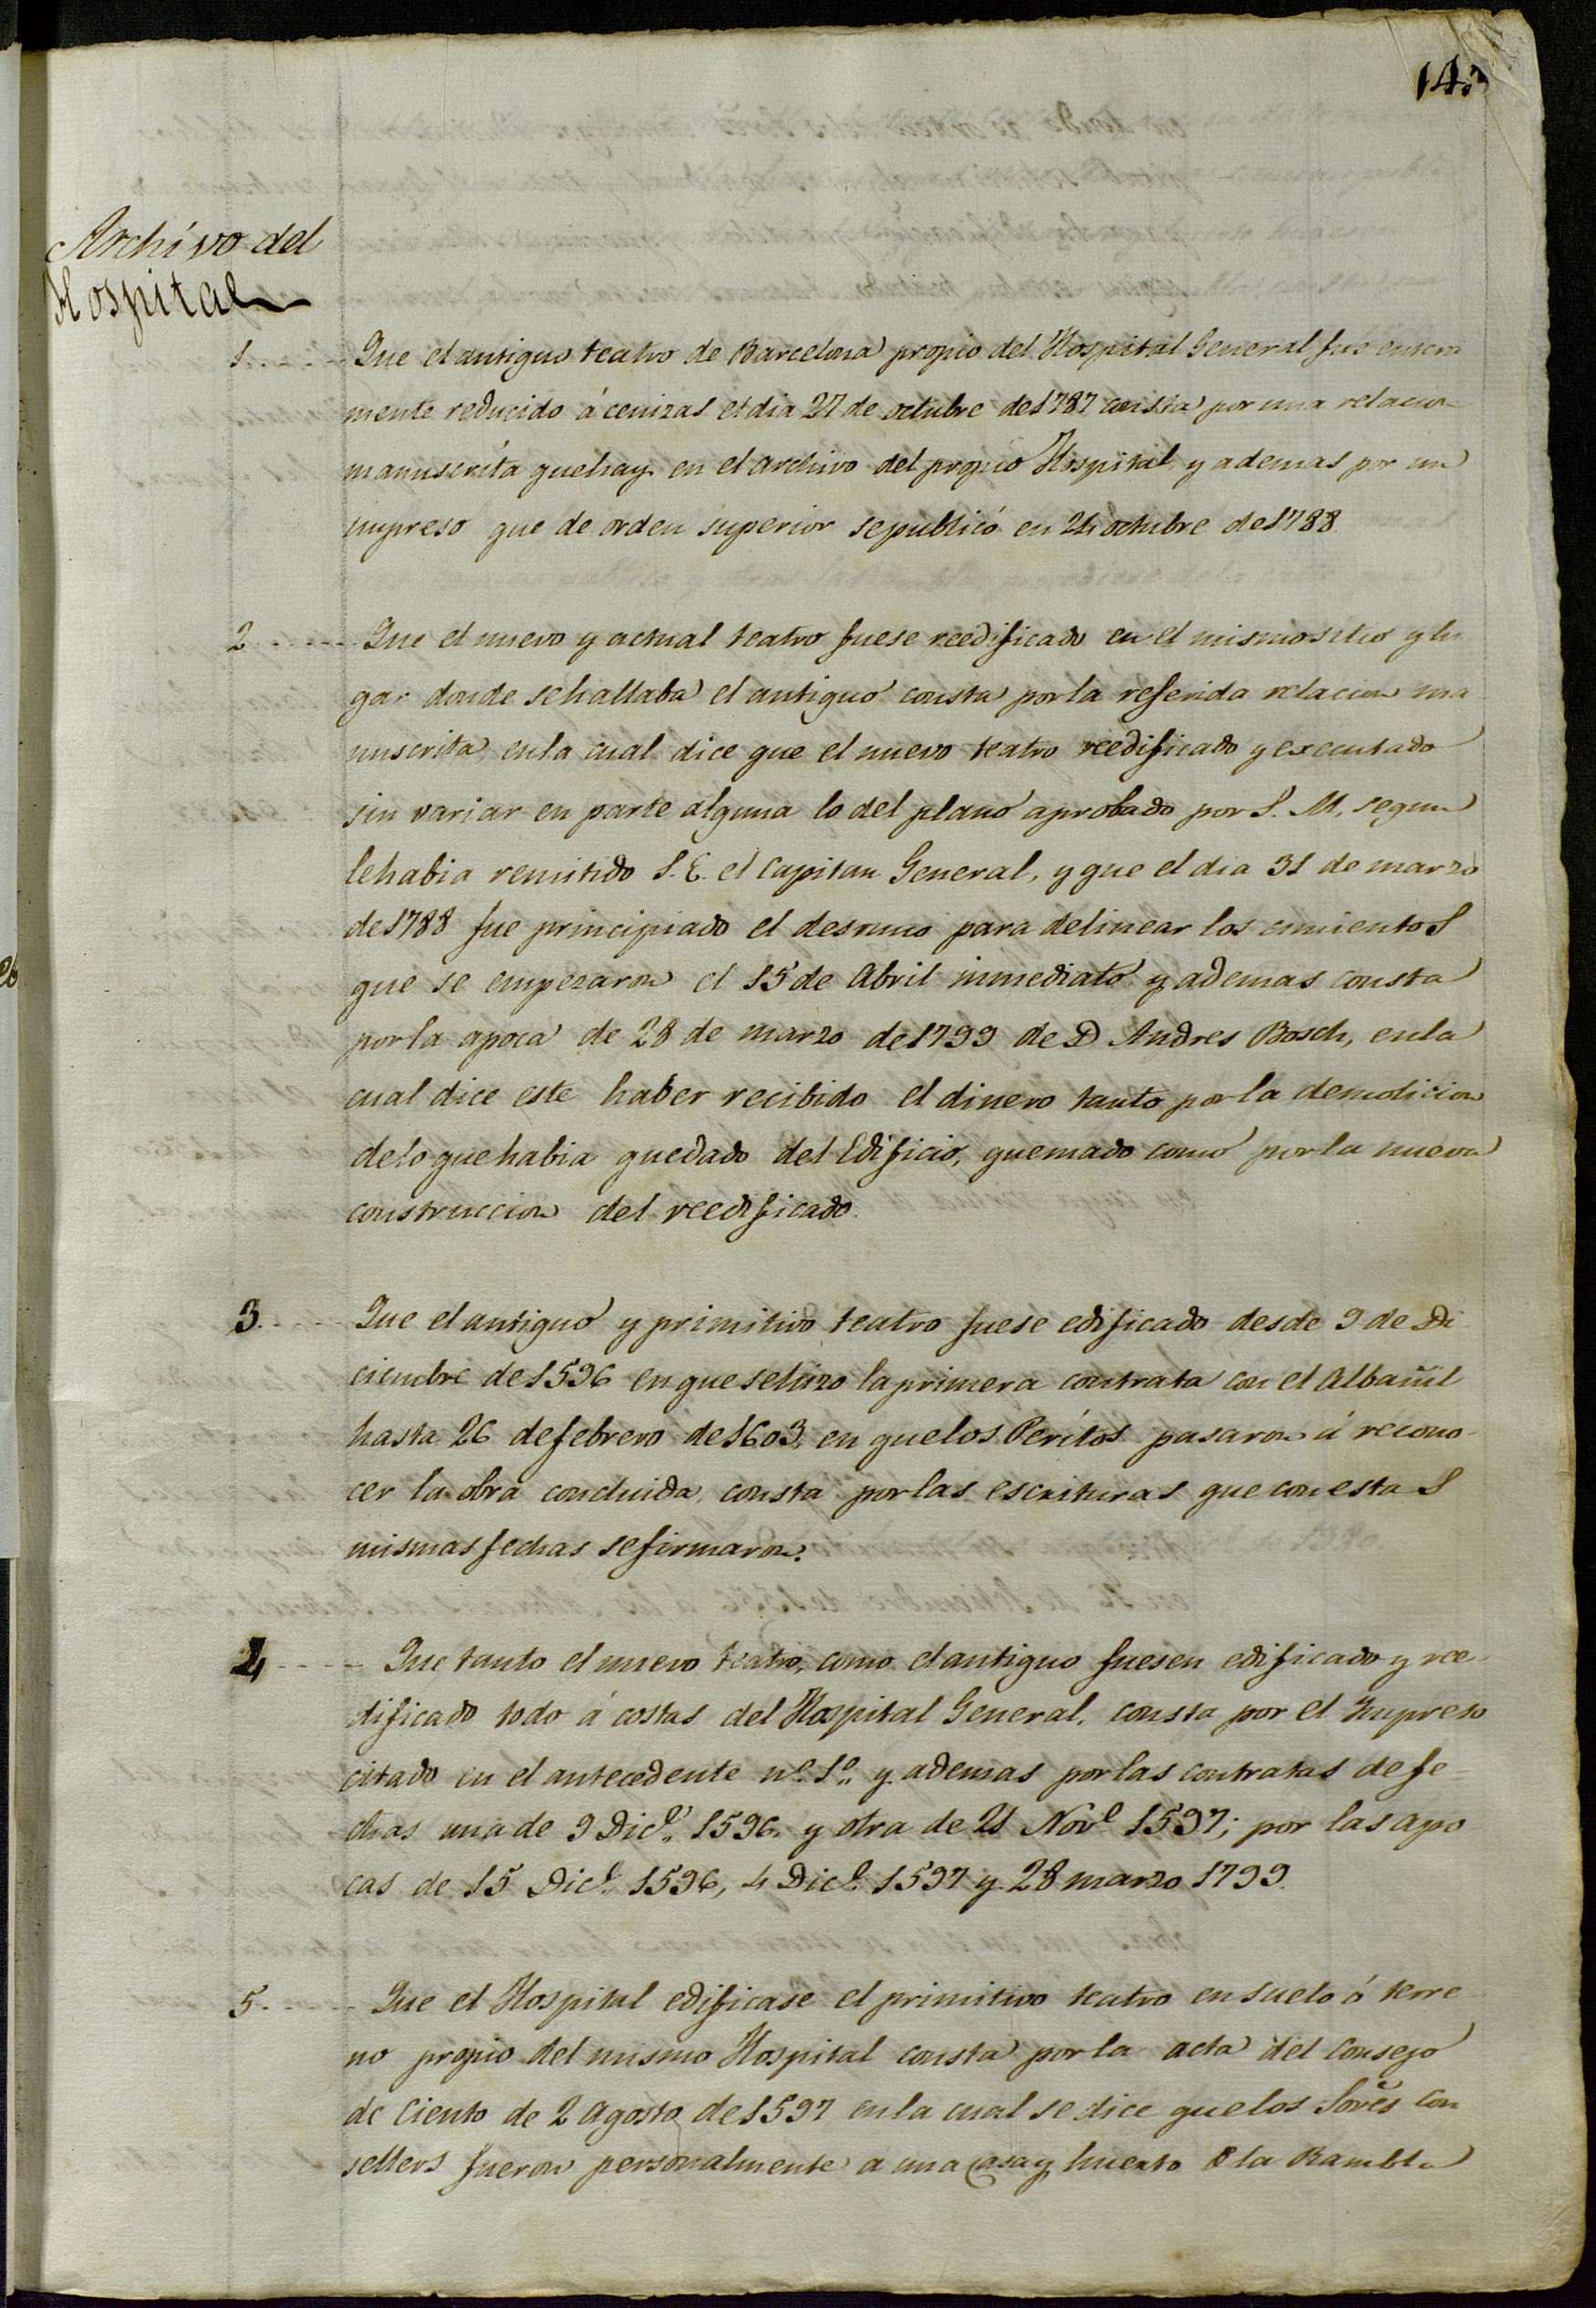 143
Archivo del
Hospital
1 Que el antiguo teatro de Barcelona propio del Hospital General fue entera
mente reducido á cenizas el dia 27 de octubre de 1787 consta por una relacion
manuscrita que hay en el archivo del propio Hospital, y ademas por un
impreso que de orden superior se publicó en 24 octubre de 1788.
2 Que el nuevo y actual teatro fuese reedificado en el mismo sitio y lu
gar donde se hallaba el antiguo consta por la referida relacion ma
nuscrita, en la cual dice que el nuevo teatro reedificado y executado
sin variar en parte alguna lo del plano aprobado por S. M. segun
le habia remitido S. E. el Capitan General, y que el dia 31 de marzo
de 1788 fue principiado el desruno para delinear los cimientos
que se empezaron el 15 de Abril inmediato y ademas consta
por la apoca de 28 de marzo de 1799 de D Andres Bosch, en la
cual dice este haber recibido el dinero tanto por la demolicion
de lo que habia quedado del Edificio, quemado como por la nueva
construccion del reedificado.
3 Que el antiguo y primitivo teatro fuese edificado desde 9 de Di
ciembre de 1596 en que se hizo la primera contrata con el Albañil
hasta 26 de febrero de 1603, en que los Peritos pasaron á recono
cer la obra concluida, consta por las escrituras que con estas
mismas fechas se firmaron.
4 Que tanto el nuevo teatro, como el antiguo fuesen edificado y ree
dificado todo á costas del Hospital General, consta por el Impreso
citado en el antecedente nº. 1º. y ademas por las contratas de fe=
chas una de 9 Dice. 1596. y otra de 21 Nove 1597; por las apo
cas de 15 Dice. 1596, 4 Dice. 1597 y 28 marzo 1799.
5 Que el Hospital edificase el primitivo teatro en suelo ó terre
no propio del mismo Hospital consta por la acta del Consejo
de Ciento de 2 Agosto de 1597 en la cual se dice que los Sores Con
sellers fueron personalmente a una casa y huerto la Rambla